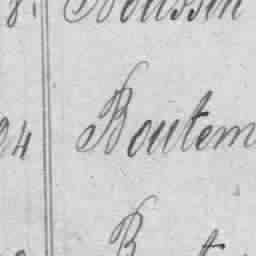 8. Boussin
24 Boutem